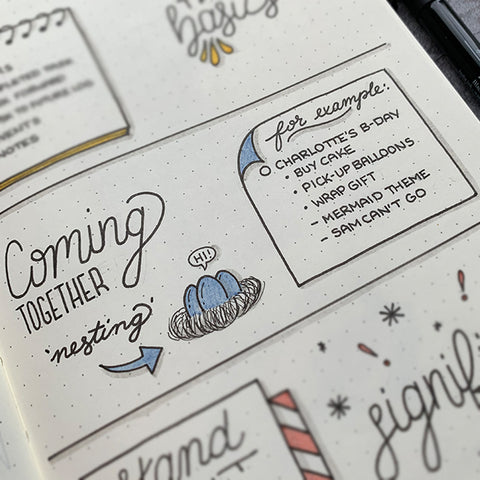 basics
TASK
FORWARD
TO FUTURE LOG
NOTES
for example:
CHARLOTTE'S B-DAY
• BUY CAKE
• PICK-UP BALLOONS
• WRAP GIFT
– MERMAID THEME
– SAM CAN'T GO
Coming
TOGETHER
'nesting'
HI!
signif
stand